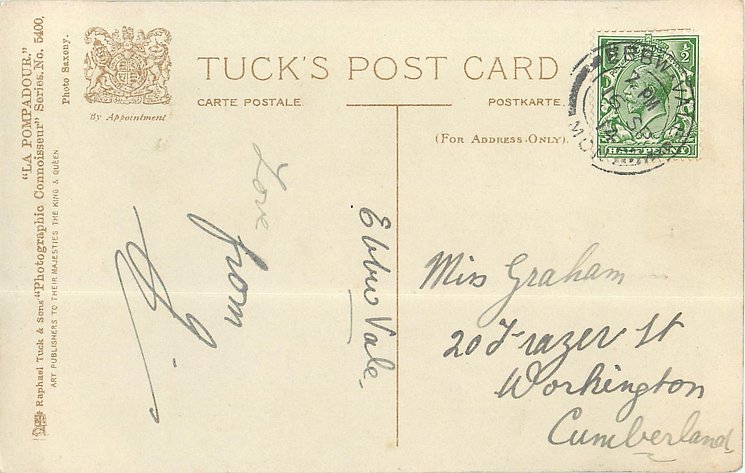 "LA POMPADOUR."
Raphael Tuck & Sons' "Photographic Connoisseur" Series, No. 5400.
ART PUBLISHERS TO THEIR MAJESTIES THE KING & QUEEN
Photo Saxony.
By Appointment
TUCK'S POST CARD
CARTE POSTALE
POSTKARTE.
(FOR ADDRESS ONLY).
EBBW VALE
7 PM
15 SP
14
MON
½
HALFPENNY
Love
from
Ebbw Vale.
Miss Graham
20 Frazer St
Workington
Cumberland